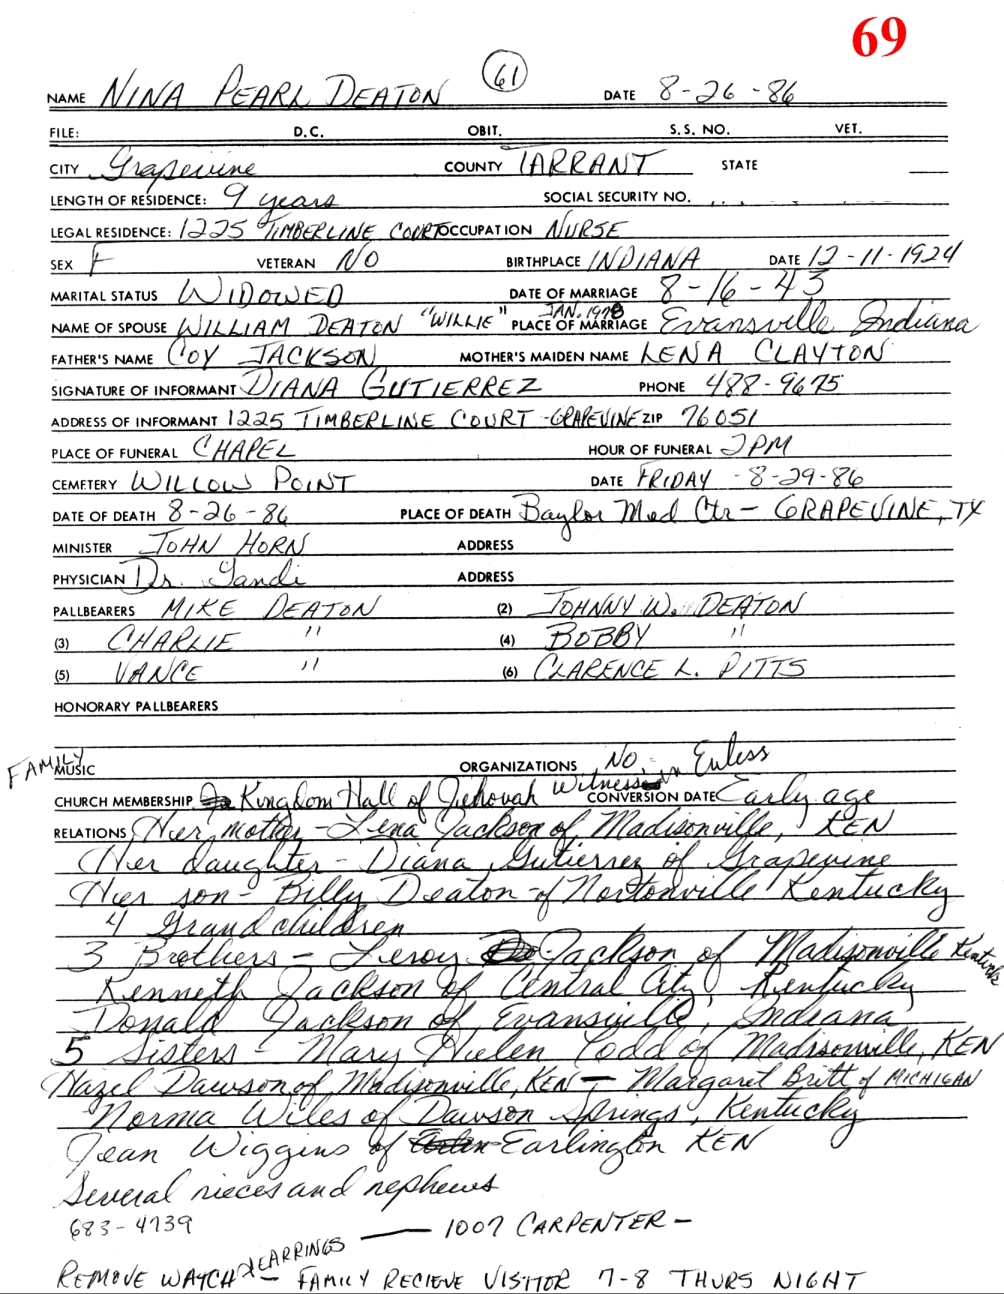 69
NAME NINA PEARL DEATON 61 DATE 8-26-86
FILE: D.C. OBIT. S.S. NO. VET.
CITY Grapevine COUNTY TARRANT STATE
LENGTH OF RESIDENCE: 9 years SOCIAL SECURITY NO.
LEGAL RESIDENCE: 1225 TIMBERLINE COURT OCCUPATION NURSE
SEX F VETERAN NO BIRTHPLACE INDIANA DATE 12-11-1924
MARITAL STATUS WIDOWED DATE OF MARRIAGE 8-16-43
NAME OF SPOUSE WILLIAM DEATON "WILLIE" JAN. 1978 PLACE OF MARRIAGE Evansville Indiana
FATHER'S NAME COY JACKSON MOTHER'S MAIDEN NAME LENA CLAYTON
SIGNATURE OF INFORMANT DIANA GUTIERREZ PHONE 488-9675
ADDRESS OF INFORMANT 1225 TIMBERLINE COURT - GRAPEVINE ZIP 76051
PLACE OF FUNERAL CHAPEL HOUR OF FUNERAL 2PM
CEMETERY WILLOW POINT DATE FRIDAY - 8-29-86
DATE OF DEATH 8-26-86 PLACE OF DEATH Baylor Med Ctr - GRAPEVINE, TX
MINISTER JOHN HORN ADDRESS
PHYSICIAN Dr. Gandi ADDRESS
PALLBEARERS MIKE DEATON (2) JOHNNY W. DEATON
(3) CHARLIE " (4) BOBBY "
(5) VANCE " (6) CLARENCE L. PITTS
HONORARY PALLBEARERS
FAMILY MUSIC ORGANIZATIONS NO
CHURCH MEMBERSHIP Kingdom Hall of Jehovah Witness in Euless CONVERSION DATE Early age
RELATIONS Her mother - Lena Jackson of Madisonville, KEN
Her daughter - Diana Gutierrez of Grapevine
Her son - Billy Deaton - of Nortonville Kentucky
4 Grandchildren
3 Brothers - Leroy Jackson of Madisonville Kentucky
Kenneth Jackson of Central City, Kentucky
Donald Jackson of Evansville, Indiana
5 Sisters - Mary Helen Todd of Madisonville, KEN
Hazel Dawson of Madisonville, KEN - Margaret Britt of MICHIGAN
Norma Wiles of Dawson Springs, Kentucky
Jean Wiggins of Earlington KEN
Several nieces and nephews
683-4739 — 1007 CARPENTER -
REMOVE WATCH & EARRINGS - FAMILY RECIEVE VISITOR 7-8 THURS NIGHT